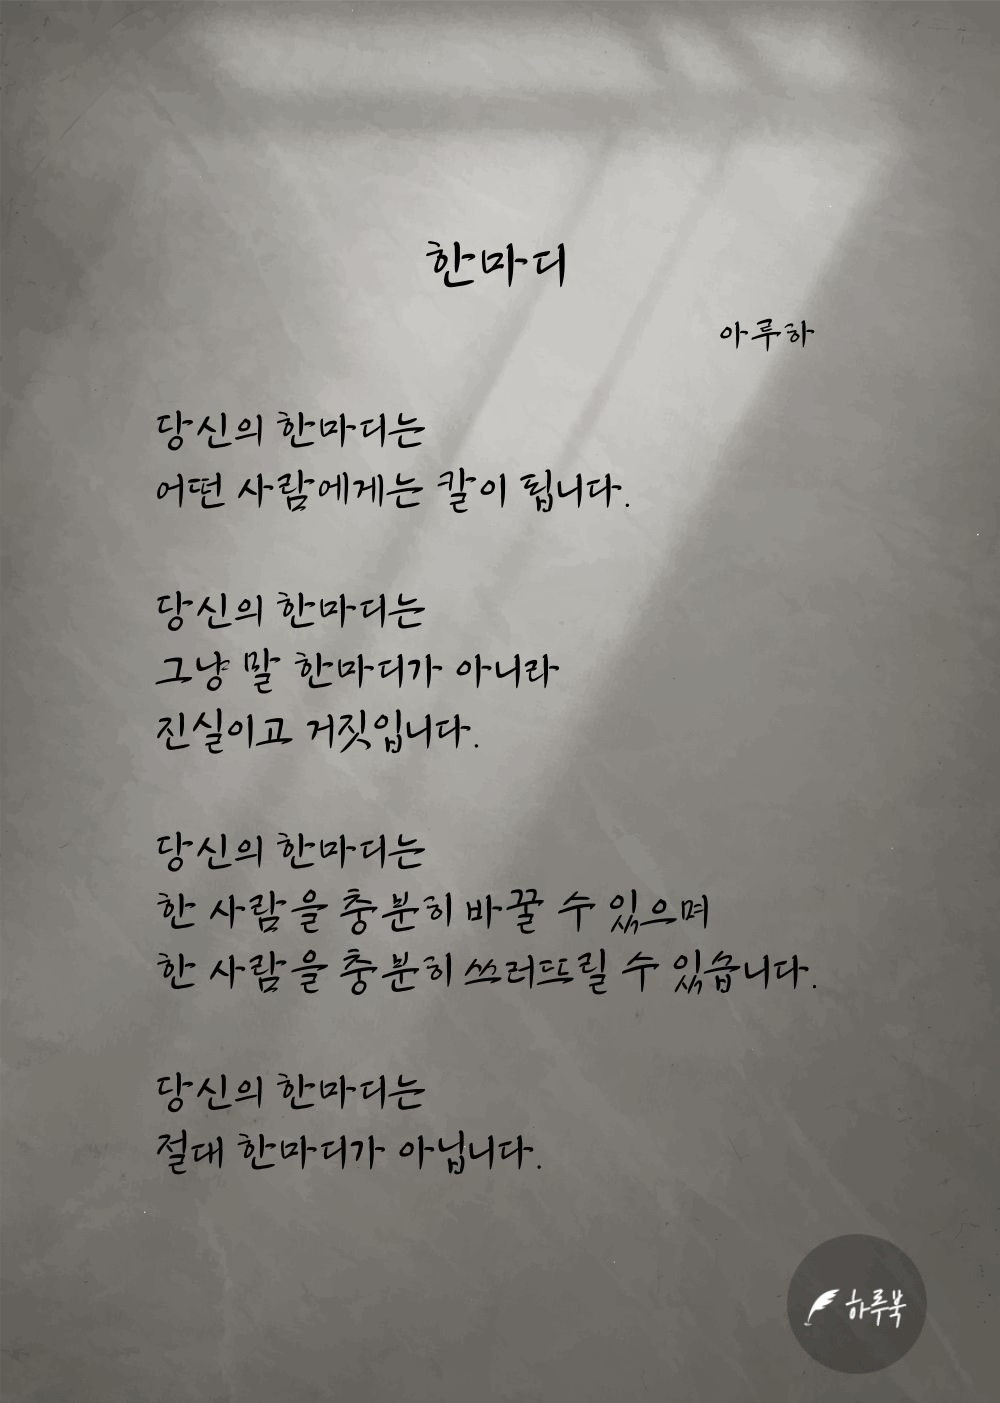 한마디
아루하
당신의 한마디는
어떤 사람에게는 칼이 됩니다.
당신의 한마디는
그냥 말 한마디가 아니라
진실이고 거짓입니다.
당신의 한마디는
한 사람을 충분히 바꿀 수 있으며
한 사람을 충분히 쓰러뜨릴 수 있습니다.
당신의 한마디는
절대 한마디가 아닙니다.
하루북